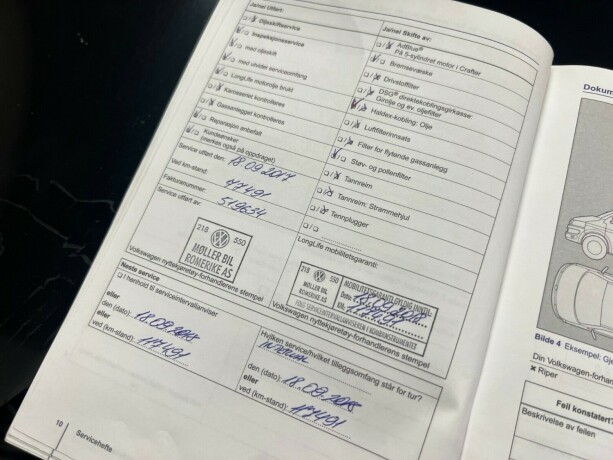 Ja/nei Utført:
Oljeskiftservice
Inspeksjonsservice
med oljeskift
med utvidet serviceomfang
LongLife motorolje brukt
Karosseriet kontrolleres
Gassanlegget kontrolleres
Reparasjon anbefalt
Kundeønsker
(merkes også på oppdraget)
Service utført den:
18.09.2017
Ved km-stand:
77491
Fakturanummer:
519634
Service utført av:
218 550
MØLLER BIL
ROMERIKE AS
Volkswagen nyttekjøretøy-forhandlerens stempel
Ja/nei Skifte av:
AdBlue®
På 5-sylindret motor i Crafter
Bremsevæske
Drivstoffilter
DSG® direktekoblingsgirkasse:
Girolje og ev. oljefilter
Haldex-kobling: Olje
Luftfilterinnsats
Filter for flytende gassanlegg
Støv- og pollenfilter
Tannreim
Tannreim: Strammehjul
Tennplugger
LongLife mobilitetsgaranti:
218 550
MØLLER BIL
ROMERIKE AS
MOBILITETSGARANTI GYLDIG INNTIL:
Dato:
Volkswagen nyttekjøretøy-forhandlerens stempel
Neste service
I henhold til serviceintervallanviser
eller
den (dato):
eller
ved (km-stand):
Hvilken service/hvilket tilleggsomfang står for tur?
den (dato):
eller
ved (km-stand):
10
Servicehefte
Dokum
Bilde 4 Eksempel: Gje
Din Volkswagen-forhan
× Riper
Feil konstatert?
Beskrivelse av feilen